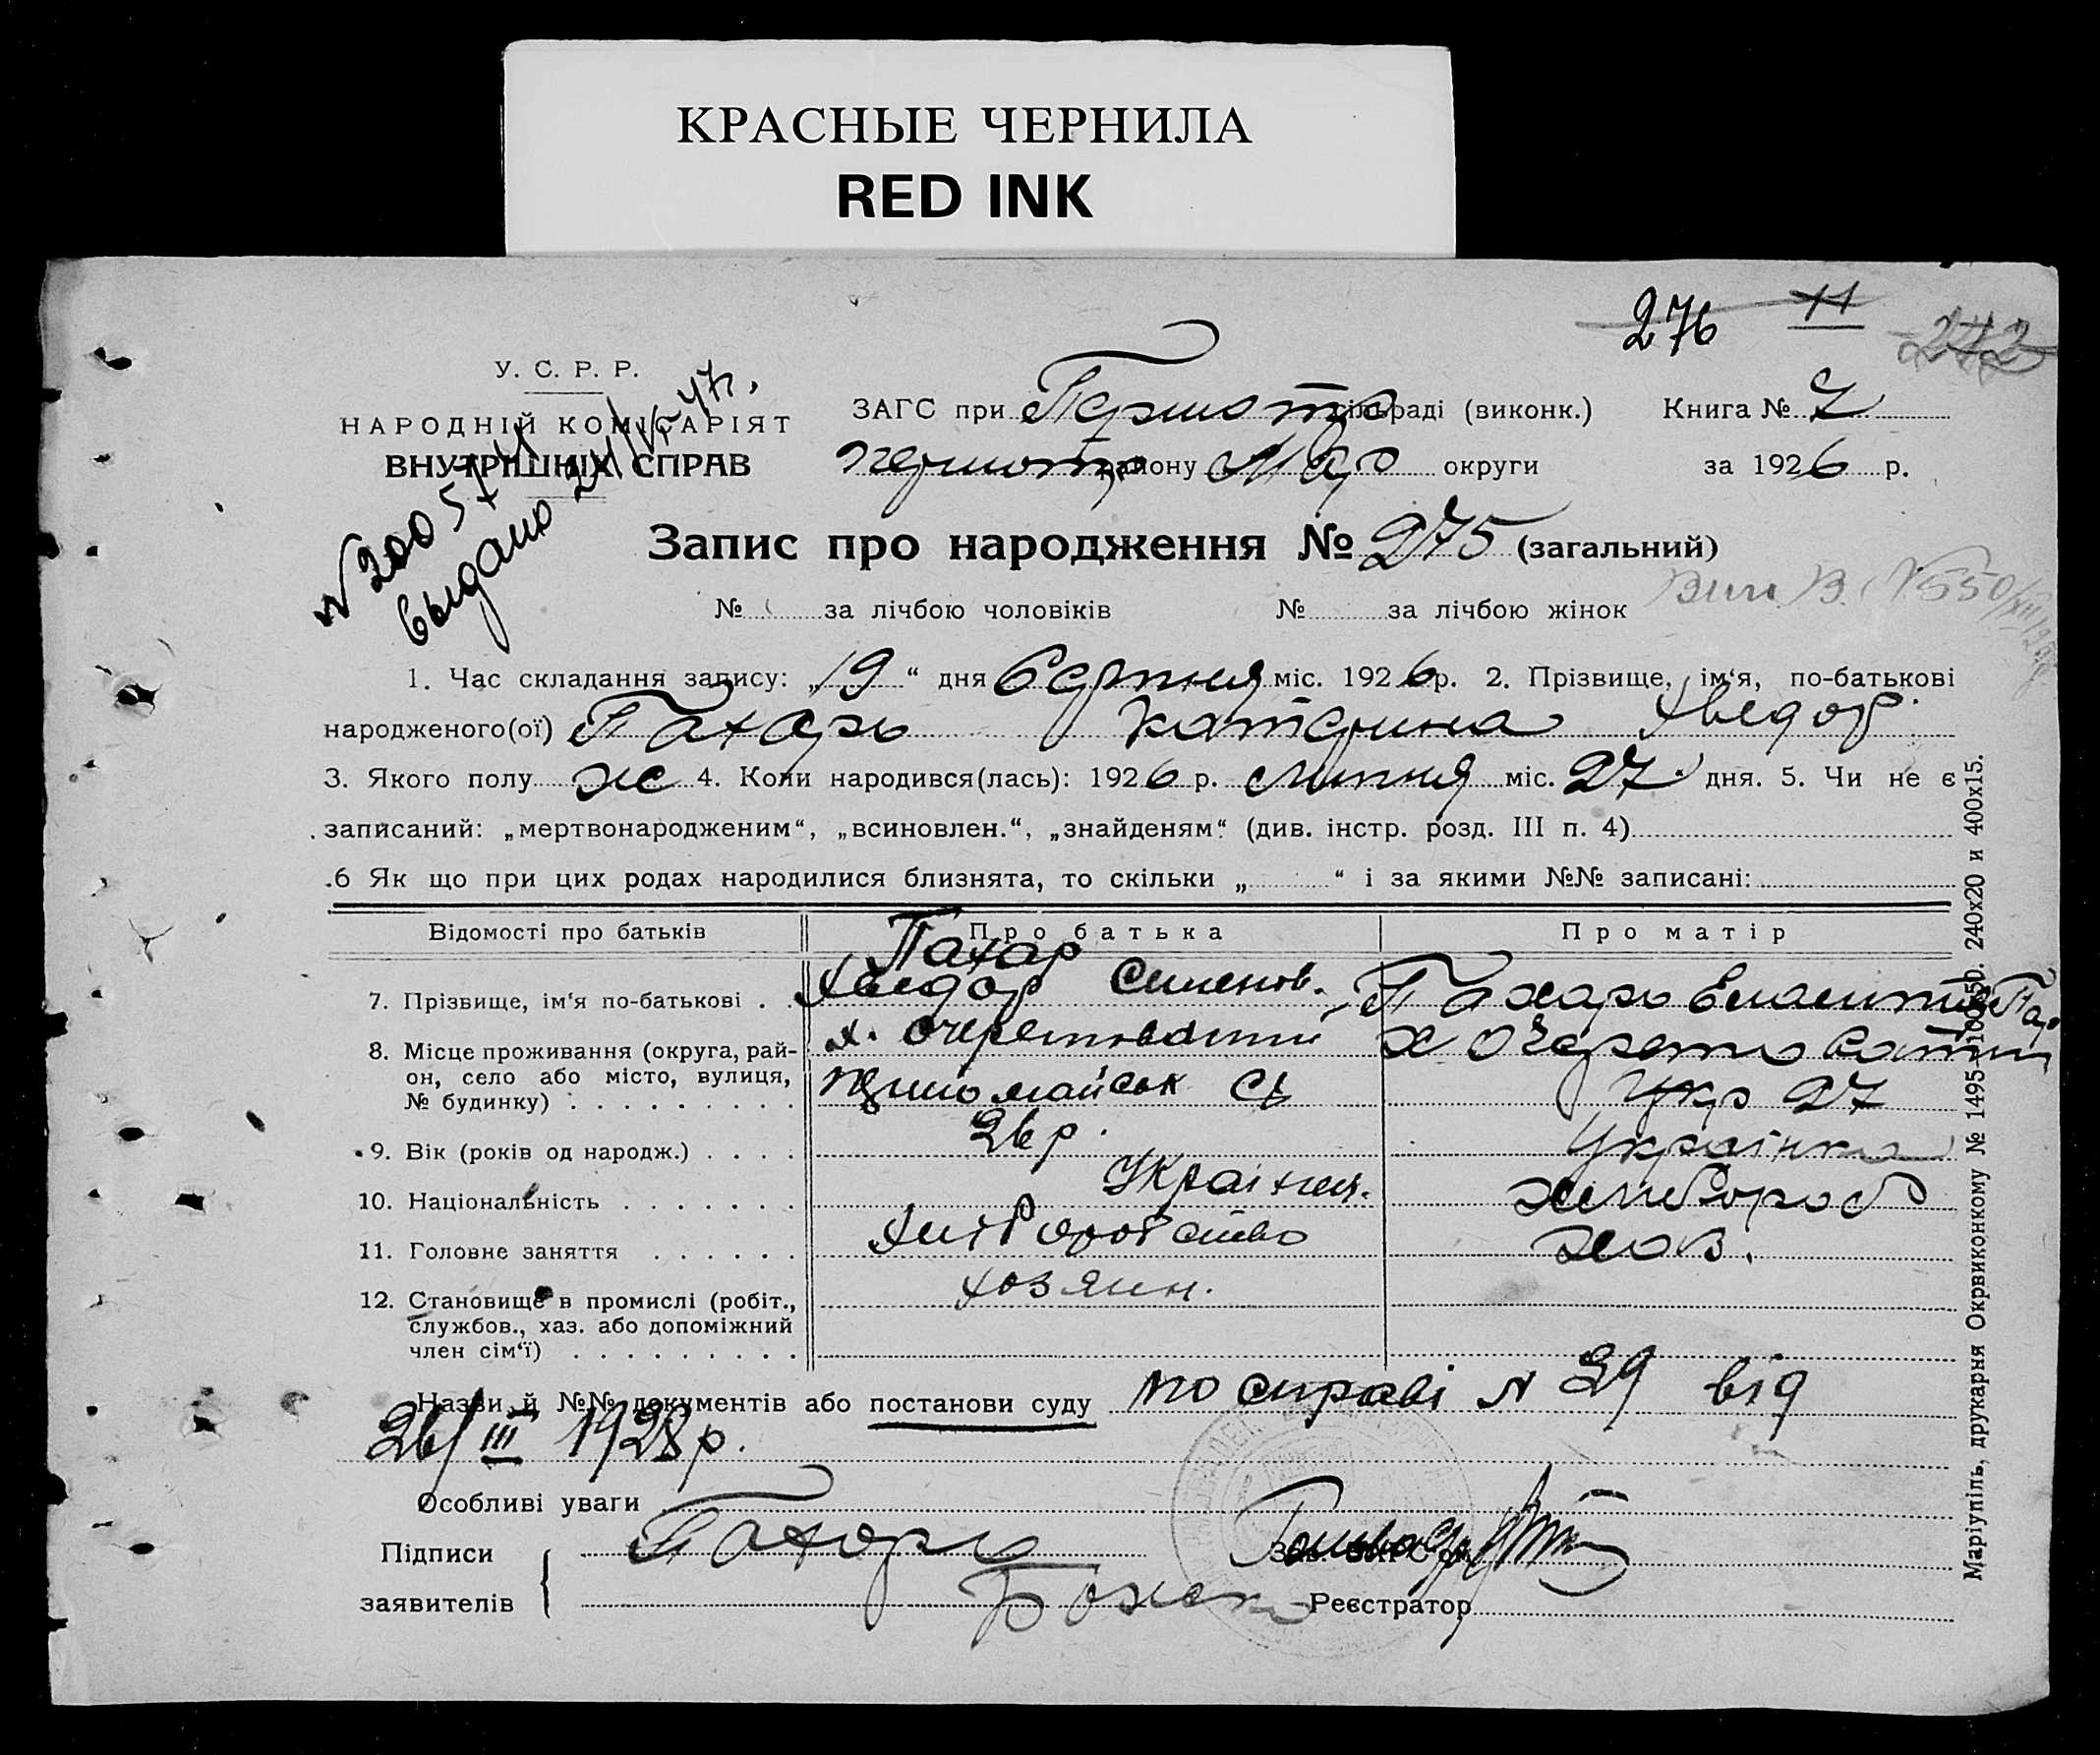 КРАСНЫЕ ЧЕРНИЛА
RED INK
276 11 242
У. С. Р. Р.
НАРОДНІЙ КОМІСАРІЯТ
ВНУТРІШНІХ СПРАВ
выдано
ЗАГС при сільраді (виконк.) Книга № 7
району округи за 1926 р.
Запис про народження № 275 (загальний)
№ за лічбою чоловіків № за лічбою жінок
1. Час складання запису: „19“ дня Серпня міс. 1926 р. 2. Прізвище, ім‘я, по-батькові
народженого(ої) Пахарь Катерина Хведор.
3. Якого полу ж 4. Коли народився(лась): 1926 р. липня міс. 27 дня. 5. Чи не є
записаний: „мертвонародженим“, „всиновлен.“, „знайденям“ (див. інстр. розд. III п. 4)
.6 Як що при цих родах народилися близнята, то скільки „ “ і за якими №№ записані:
Відомості про батьків Про батька Про матір
Пахар
7. Прізвище, ім‘я по-батькові . . Хведор Семенов. Пахарь
8. Місце проживання (округа, рай-
он, село або місто, вулиця,
№ будинку) х.
26 р. Укр 27
9. Вік (років од народж.) Українка
10. Національність Україн. хлибороб
11. Головне заняття Хліборобство
хозяин.
12. Становище в промислі (робіт.,
службов., хаз. або допоміжний
член сім‘ї)
Назви й №№ документів або постанови суду по справі № 29 від
26/III 1928 р.
Особливі уваги
Підписи
заявителів
Реєстратор
Маріупіль, друкарня Окрвиконкому № 1495—100×50. 240х20 и 400х15.